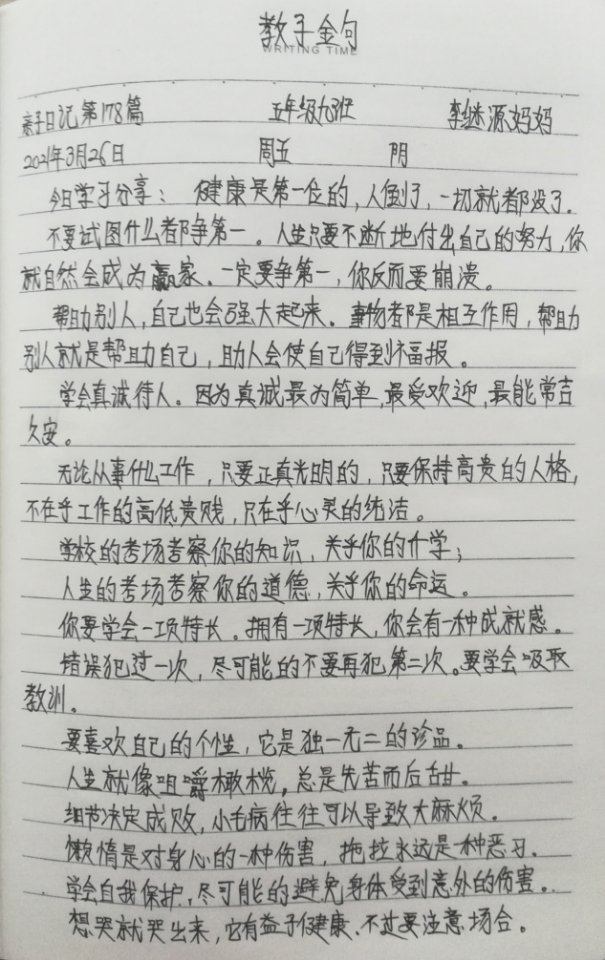 教子金句
WRITING TIME
亲子日记第178篇 五年级九班 李继源妈妈
2021年3月26日 周五 阴
今日学习分享：健康是第一位的，人倒了，一切就都没了。
不要试图什么都争第一。人生只要不断地付出自己的努力，你
就自然会成为赢家。一定要争第一，你反而要崩溃。
帮助别人，自己也会强大起来。事物都是相互作用，帮助
别人就是帮助自己，助人会使自己得到福报。
学会真诚待人。因为真诚最为简单，最受欢迎，最能常吉
久安。
无论从事什么工作，只要正真光明的，只要保持高贵的人格，
不在乎工作的高低贵贱，只在乎心灵的纯洁。
学校的考场考察你的知识，关乎你的升学；
人生的考场考察你的道德，关乎你的命运。
你要学会一项特长。拥有一项特长，你会有一种成就感。
错误犯过一次，尽可能的不要再犯第二次。要学会吸取
教训。
要喜欢自己的个性，它是独一无二的珍品。
人生就像咀嚼橄榄，总是先苦而后甜。
细节决定成败，小毛病往往可以导致大麻烦。
懒惰是对身心的一种伤害，拖拉永远是一种恶习。
学会自我保护，尽可能的避免身体受到意外的伤害。
想哭就哭出来，它有益于健康、不过要注意场合。